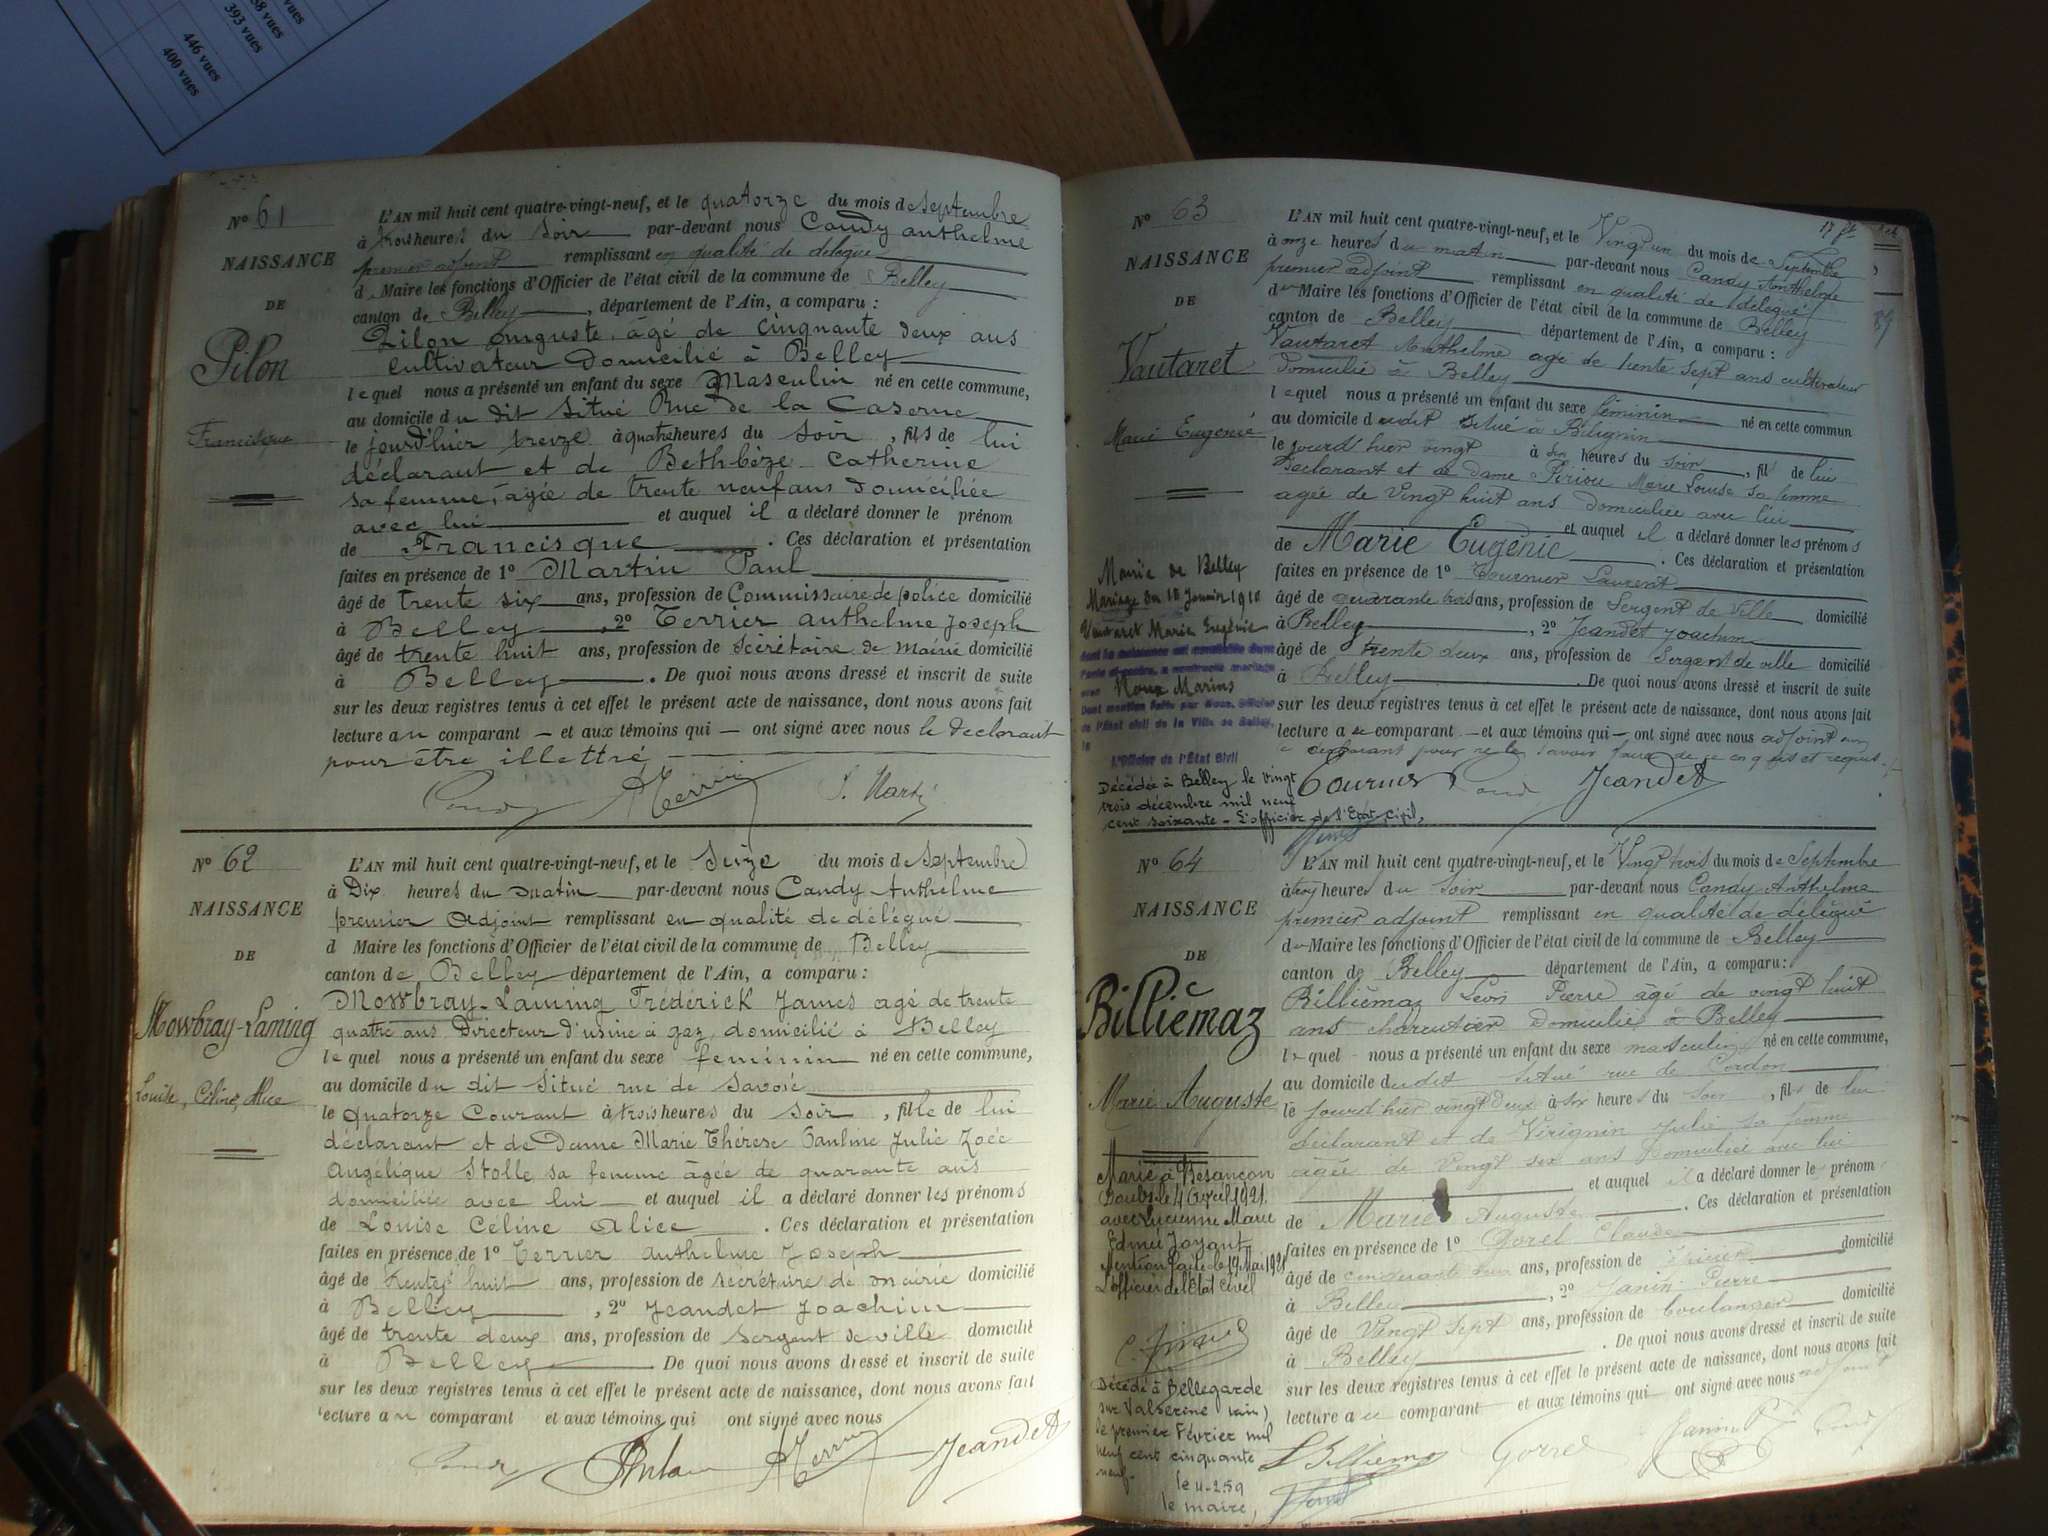 393 vues
446 vues
400 vues
N° 61
NAISSANCE
DE
Pilon
Francisque
L'AN mil huit cent quatre-vingt-neuf, et le quatorze du mois de septembre
à trois heures du soir par-devant nous Candy anthelme
premier adjoint remplissant en qualité de délégué
d Maire les fonctions d'Officier de l'état civil de la commune de Belley
canton de Belley, département de l'Ain, a comparu :
Pilon auguste, âgé de cinquante deux ans
cultivateur domicilié à Belley
lequel nous a présenté un enfant du sexe Masculin né en cette commune,
au domicile du dit situé Rue de la Caserne
le jourd'hier treize à quatre heures du soir, fils de lui
déclarant et de Bethbèze Catherine
sa femme, agée de trente neuf ans domiciliée
avec lui et auquel il a déclaré donner le prénom
de Francisque. Ces déclaration et présentation
faites en présence de 1° Martin Paul
âgé de trente six ans, profession de Commissaire de police domicilié
à Belley, 2° Terrier anthelme Joseph
âgé de trente huit ans, profession de sécrétaire de mairie domicilié
à Belley. De quoi nous avons dressé et inscrit de suite
sur les deux registres tenus à cet effet le présent acte de naissance, dont nous avons fait
lecture au comparant – et aux témoins qui – ont signé avec nous le declarant
pour être illettré
Candy ATerrier P. Martin
N° 62
NAISSANCE
DE
Mowbray-Laming
Louise, Céline, Alice
L'AN mil huit cent quatre-vingt-neuf, et le Seize du mois de Septembre
à Dix heures du matin par-devant nous Candy Anthelme
premier Adjoint remplissant en qualité de délégué
d Maire les fonctions d'Officier de l'état civil de la commune de Belley
canton de Belley département de l'Ain, a comparu :
Mowbray-Laming Frédérick James agé de trente
quatre ans Directeur d'usine à gaz, domicilié à Belley
lequel nous a présenté un enfant du sexe feminin né en cette commune,
au domicile du dit situé rue de Savoie
le quatorze Courant à trois heures du soir, fille de lui
déclarant et de Dame Marie Thérèse Pauline Julie Zoée
Angélique Stolle, sa femme âgée de quarante ans
domiciliée avec lui et auquel il a déclaré donner les prénoms
de Louise Céline Alice. Ces déclaration et présentation
faites en présence de 1° Terrier anthelme Joseph
âgé de trente huit ans, profession de sécrétaire de mairie domicilié
à Belley, 2° Jeandet Joachim
âgé de trente deux ans, profession de sergent de ville domicilié
à Belley De quoi nous avons dressé et inscrit de suite
sur les deux registres tenus à cet effet le présent acte de naissance, dont nous avons fait
lecture au comparant et aux témoins qui ont signé avec nous
Candy ATerrier Jeandet
N° 63
NAISSANCE
DE
Vautaret
Marie Eugénie
Mairie de Belley
Mariage du 18 Janvier 1910
Vautaret Marie Eugénie
dont la naissance est constatée dans
l'acte ci-contre, a contracté mariage
avec Roux Marius
Dont mention faite par Nous, Officier
de l'Etat civil de la Ville de Belley,
le
L'Officier de l'Etat Civil
Décédée à Belley le vingt
trois décembre mil neuf
cent soixante – L'officier de l'Etat Civil,
L'AN mil huit cent quatre-vingt-neuf, et le Vingt un du mois de Septembre
à onze heures du matin par-devant nous Candy Anthelme
premier adjoint remplissant en qualité de délégué
du Maire les fonctions d'Officier de l'état civil de la commune de Belley
canton de Belley département de l'Ain, a comparu :
Vautaret Anthelme agé de trente sept ans cultivateur
domicilié à Belley
lequel nous a présenté un enfant du sexe féminin né en cette commun
au domicile dudit situé à Billignin
le jourd hier vingt à six heures du soir, fil de lui
déclarant et de Dame Piriou Marie Louise sa femme
agée de Vingt huit ans domiciliée avec lui
et auquel il a déclaré donner les prénoms
de Marie Eugénie. Ces déclaration et présentation
faites en présence de 1° Tournier Laurent
âgé de quarante trois ans, profession de Sergent de Ville domicilié
à Belley, 2° Jeandet Joachim
âgé de trente deux ans, profession de Sergent de ville domicilié
à Belley. De quoi nous avons dressé et inscrit de suite
sur les deux registres tenus à cet effet le présent acte de naissance, dont nous avons fait
lecture au comparant – et aux témoins qui – ont signé avec nous adjoint non
le déclarant pour ne le savoir faire de ce enquis et requis
Tournier Candy Jeandet
N° 64
NAISSANCE
DE
Billiémaz
Marie Auguste
Marié à Besançon
Doubs le 4 Avril 1921
avec Lucienne Marie
Edmée Joyant
Mention faite le 17 Mai 1921
L'officier de l'Etat Civil
Décédé à Bellegarde
sur Valserine (ain)
le premier Février mil
neuf cent cinquante
neuf.
le 4-2-59
le maire,
L'AN mil huit cent quatre-vingt-neuf, et le Vingt trois du mois de Septembre
à trois heures du soir par-devant nous Candy Anthelme
premier adjoint remplissant en qualité de délégué
du Maire les fonctions d'Officier de l'état civil de la commune de Belley
canton de Belley département de l'Ain, a comparu :
Billiémaz Léon Pierre âgé de vingt huit
ans charcutier domicilié à Belley
lequel nous a présenté un enfant du sexe masculin né en cette commune,
au domicile dudit situé rue de Cordon
le jourd hier vingt deux à six heures du soir, fils de lui
déclarant et de Virignin Julie sa femme
agée de Vingt six ans domiciliée avec lui
et auquel il a déclaré donner le prénom
de Marie Auguste. Ces déclaration et présentation
faites en présence de 1° Gorel Claude
âgé de cinquante ans, profession de domicilié
à Belley, 2° Janin Pierre
âgé de Vingt Sept ans, profession de boulanger domicilié
à Belley. De quoi nous avons dressé et inscrit de suite
sur les deux registres tenus à cet effet le présent acte de naissance, dont nous avons fait
lecture au comparant et aux témoins qui ont signé avec nous adjoint
L Billiemaz Gorrel Janin P Candy